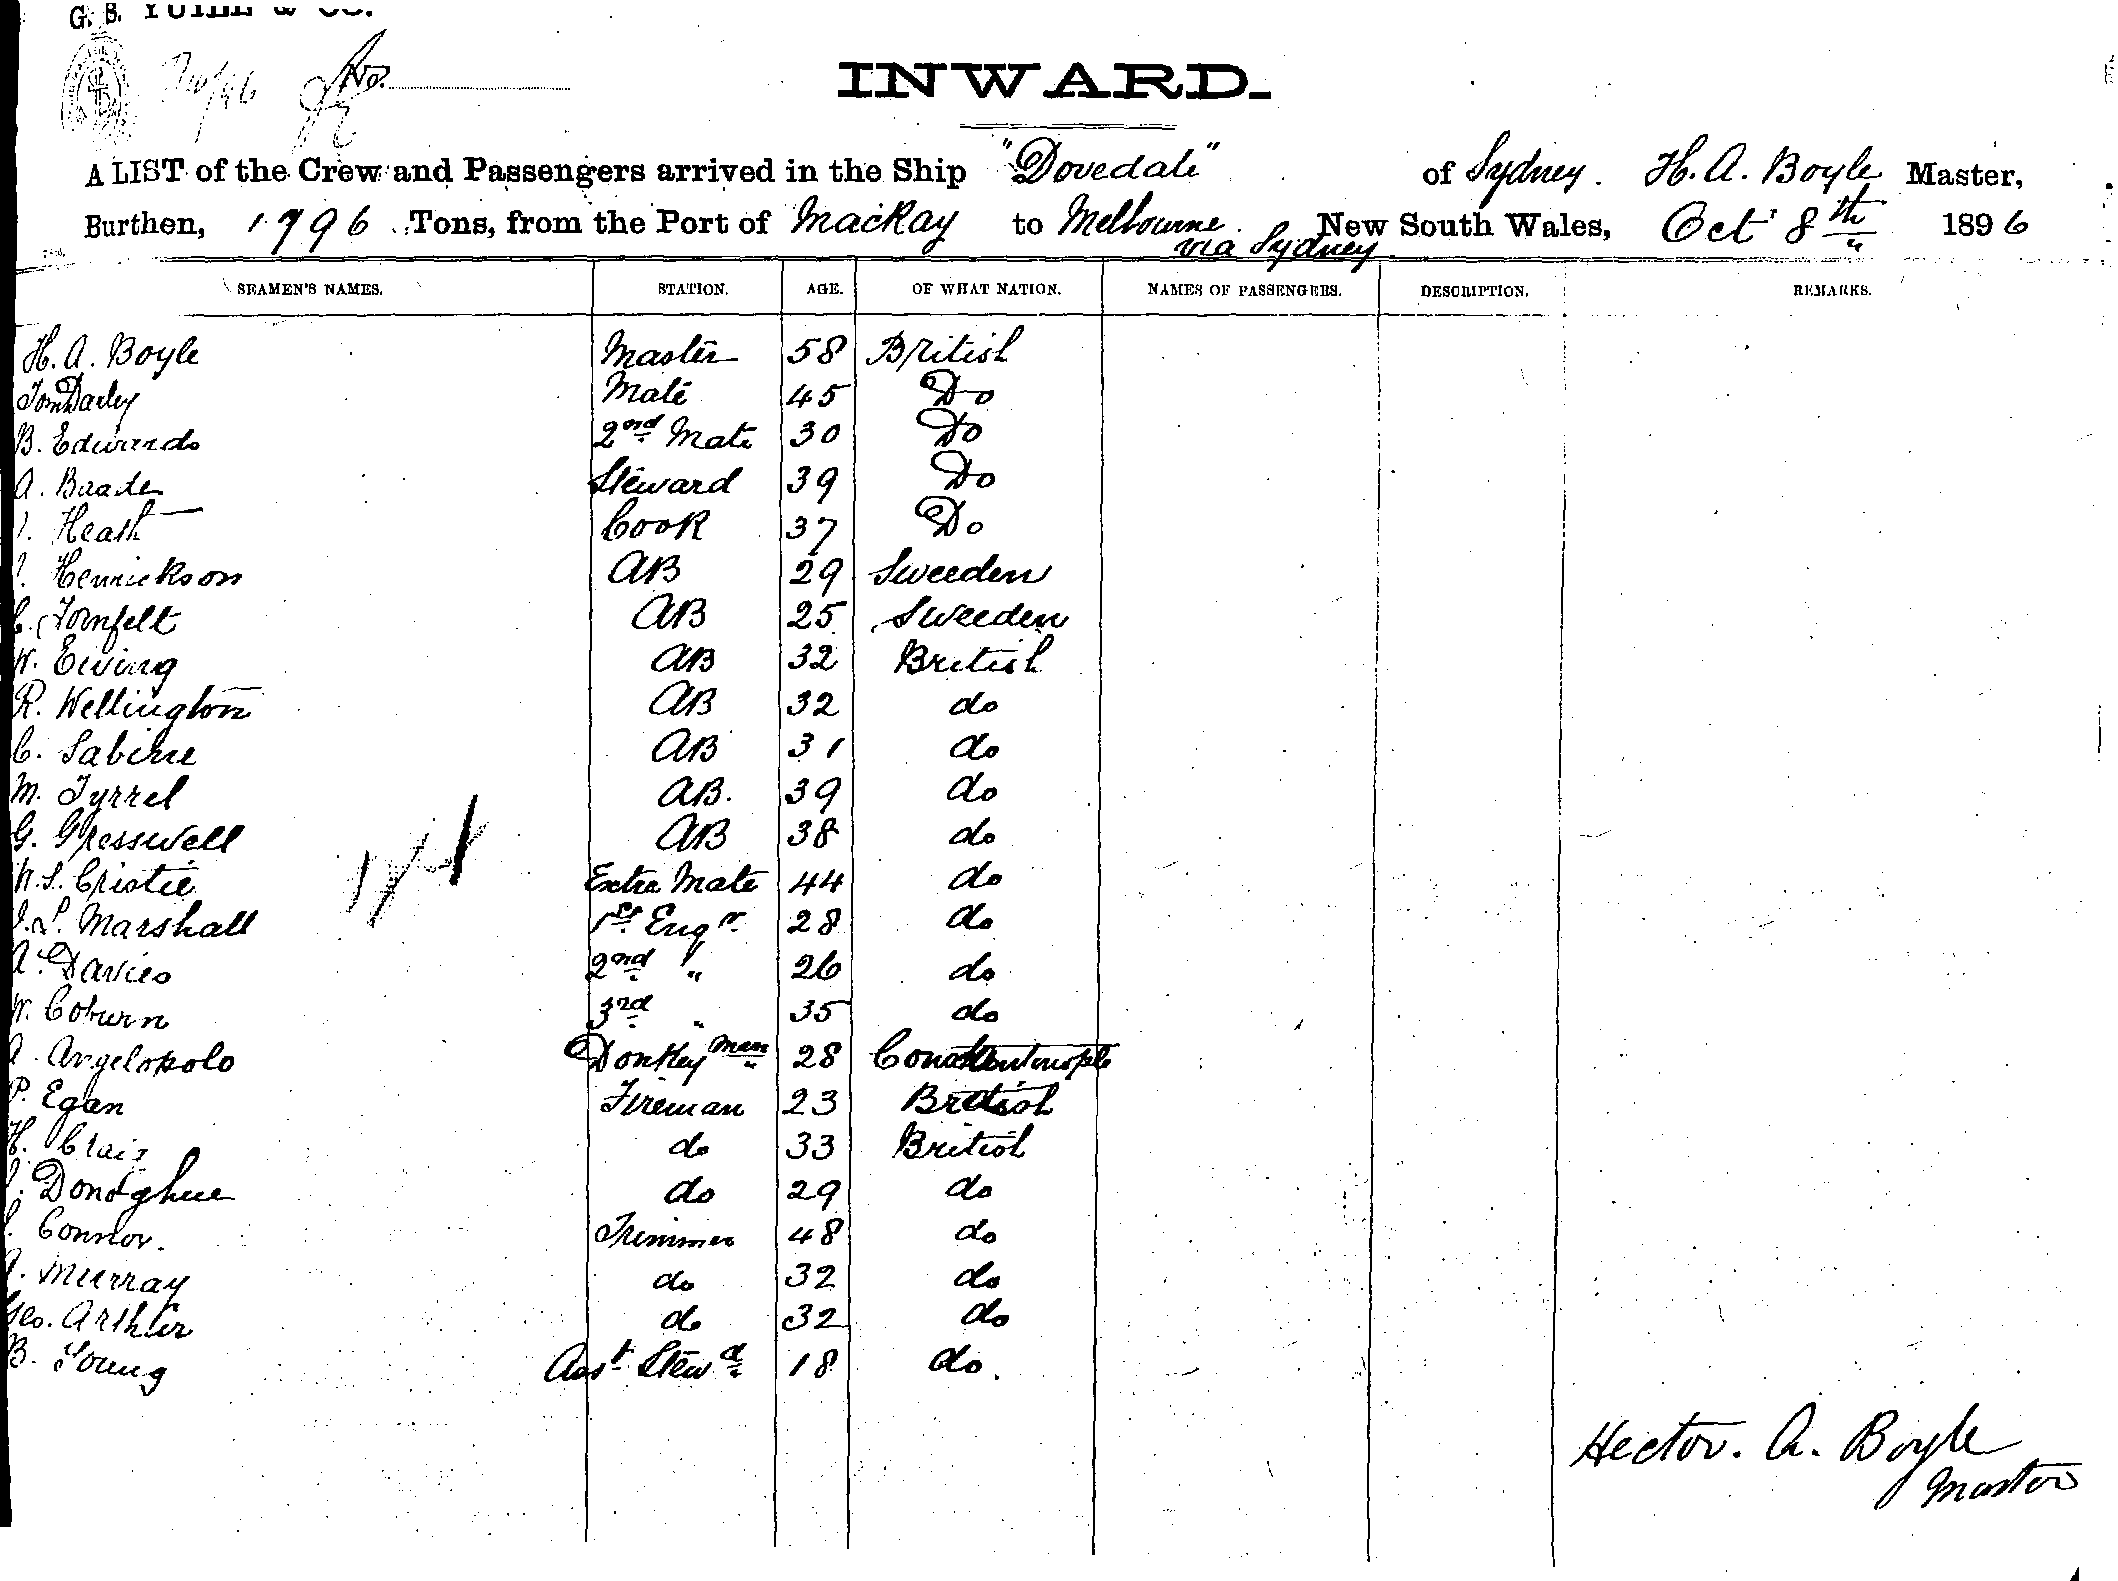 G. S. YUILL & CO.
No.
INWARD.
A LIST of the Crew and Passengers arrived in the Ship "Dovedale" of Sydney. H. A. Boyle Master,
Burthen, 1796 Tons, from the Port of Mackay to Melbourne New South Wales, Oct 8th 1896
via Sydney.
SEAMEN'S NAMES. STATION. AGE. OF WHAT NATION. NAMES OF PASSENGERS. DESCRIPTION. REMARKS.
H. A. Boyle Master 58 British
Tom Darley Mate 45 Do
B. Edwards 2nd Mate 30 Do
A. Baade Steward 39 Do
Heath Cook 37 Do
Henrickson AB 29 Sweeden
C. Tornfelt AB 25 Sweeden
W. Ewing AB 32 British
R. Wellington AB 32 do
C. Sabine AB 31 do
M. Tyrrel AB. 39 do
G. Gresswell AB 38 do
W. S. Cristie Extra Mate 44 do
J. L. Marshall 1st Engr 28 do
A. Davies 2nd " 26 do
W. Coburn 3rd " 35 do
A. Argelopolo Donkeyman 28 Constantinople
P. Egan Fireman 23 British
H. Clair do 33 British
Donoghue do 29 do
Connor. Trimmer 48 do
Murray do 32 do
Geo. Arthur do 32 do
B. Young Asst Stewd 18 do.
Hector. A. Boyle
Master